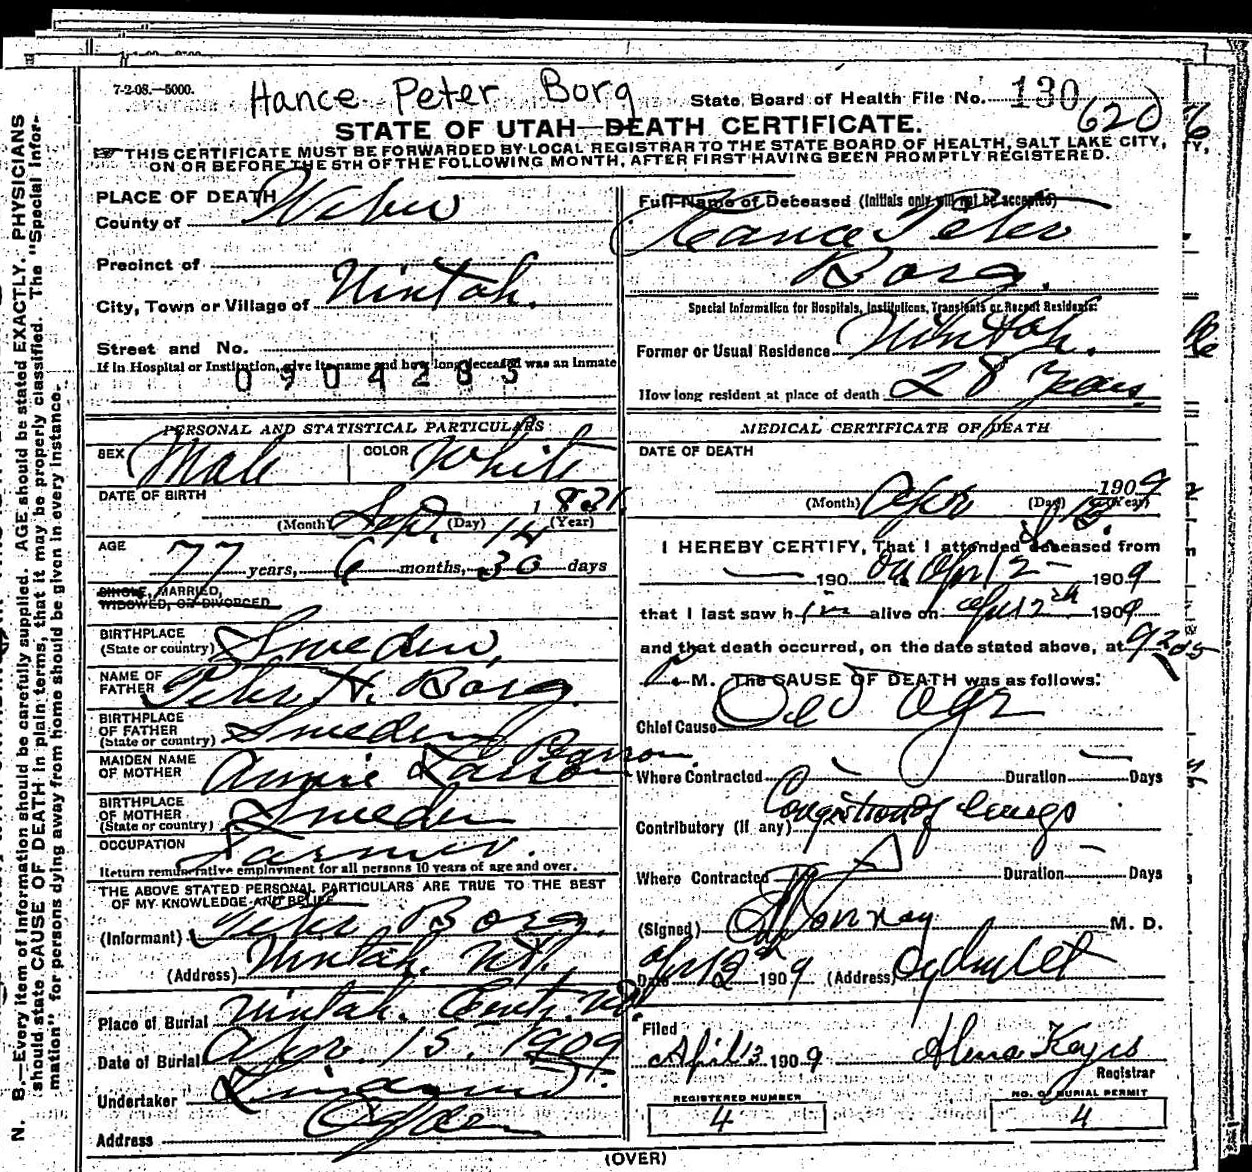 7-2-08.—5000.
Hance Peter Borg
State Board of Health File No. 130
620
STATE OF UTAH—DEATH CERTIFICATE.
THIS CERTIFICATE MUST BE FORWARDED BY LOCAL REGISTRAR TO THE STATE BOARD OF HEALTH, SALT LAKE CITY,
ON OR BEFORE THE 5TH OF THE FOLLOWING MONTH, AFTER FIRST HAVING BEEN PROMPTLY REGISTERED.
PLACE OF DEATH
County of Weber
Precinct of
City, Town or Village of Uintah.
Street and No.
If in Hospital or Institution, give its name and how long deceased was an inmate
0904283
PERSONAL AND STATISTICAL PARTICULARS
SEX Male COLOR White
DATE OF BIRTH
Sept. 14 1831
(Month) (Day) (Year)
AGE
77 years, 6 months, 30 days
SINGLE, MARRIED,
WIDOWED, OR DIVORCED
BIRTHPLACE
(State or country) Sweden,
NAME OF
FATHER Peter H. Borg.
BIRTHPLACE
OF FATHER
(State or country) Sweden
MAIDEN NAME
OF MOTHER Annie
BIRTHPLACE
OF MOTHER
(State or country) Sweden
OCCUPATION Farmer.
Return remunerative employment for all persons 10 years of age and over.
THE ABOVE STATED PERSONAL PARTICULARS ARE TRUE TO THE BEST
OF MY KNOWLEDGE AND BELIEF
(Informant) Peter Borg.
(Address) Uintah. Ut.
Place of Burial Uintah.
Date of Burial Apr. 15. 1909
Undertaker
Address Ogden
Full Name of Deceased (Initials only will not be accepted)
Hance Peter
Borg.
Special Information for Hospitals, Institutions, Transients or Recent Residents:
Former or Usual Residence Uintah.
How long resident at place of death 28 years.
MEDICAL CERTIFICATE OF DEATH
DATE OF DEATH
Apr 1909
(Month) (Day) (Year)
I HEREBY CERTIFY, That I attended deceased from
190 on Apr 12 1909
that I last saw him alive on Apr 12th 1909
and that death occurred, on the date stated above, at
M. The CAUSE OF DEATH was as follows:
Chief Cause Old age
Where Contracted Duration Days
Contributory (if any) Congestion of lungs
Where Contracted Duration Days
(Signed) M. D.
Date 1909 (Address) Ogden Ut
Filed
April 13 1909 Alma Keyes
Registrar
REGISTERED NUMBER
4
NO. OF BURIAL PERMIT
4
(OVER)
N. B.—Every item of information should be carefully supplied. AGE should be stated EXACTLY. PHYSICIANS
should state CAUSE OF DEATH in plain terms, that it may be properly classified. The "Special Infor-
mation" for persons dying away from home should be given in every instance.